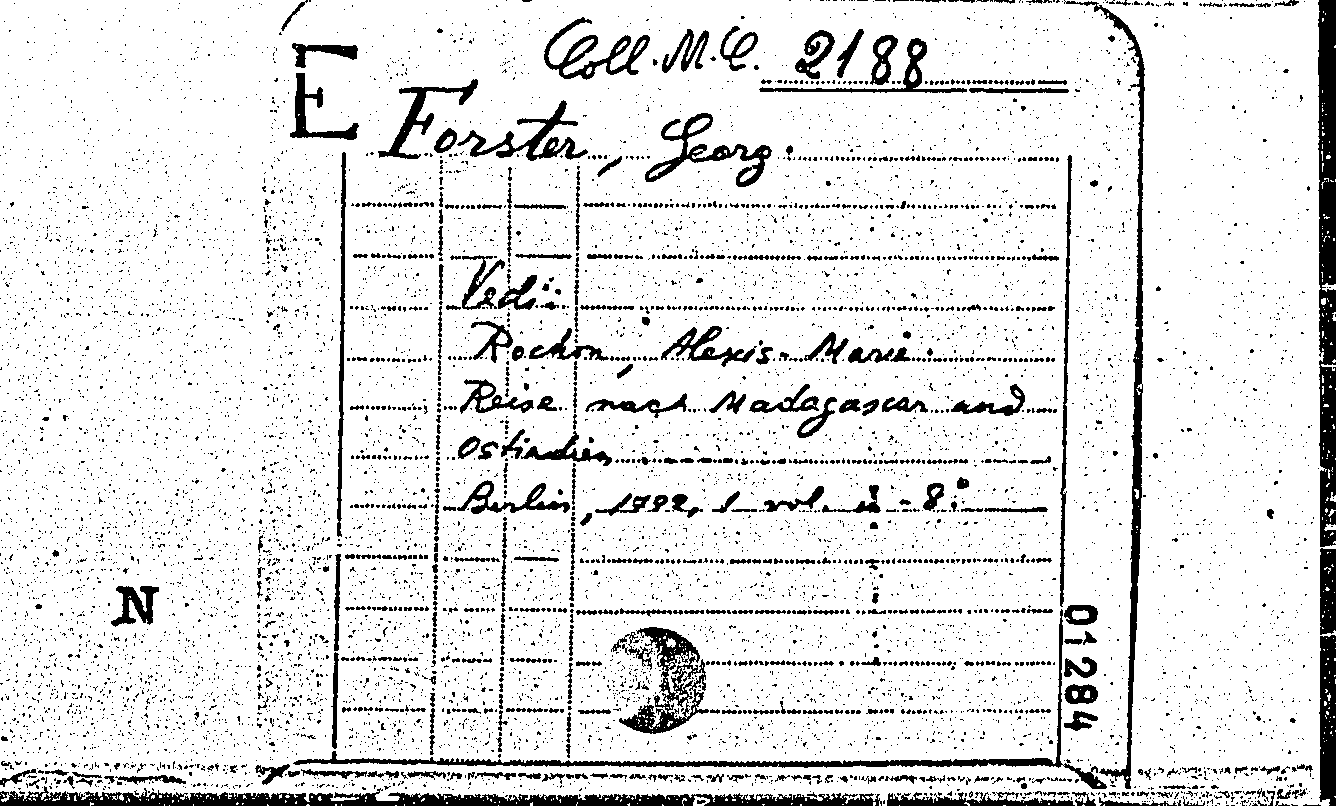 Coll. M. C. 2188
E
Forster, Georg.
Vedi:
Rochon, Alexis-Marie.
Reise nach Madagascar und
Ostindien
Berlin, 1792, 1 vol. in-8°
N
01284